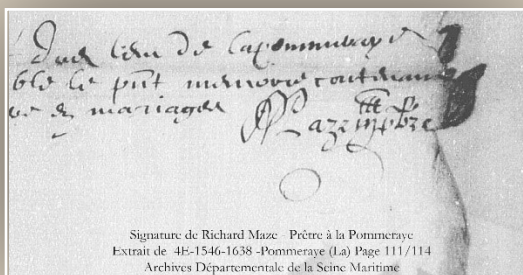 lieu de lapommeraye
ble le pñt memoire contenant
mariages
Signature de Richard Maze - Prêtre à la Pommeraye
Extrait de 4E-1546-1638 -Pommeraye (La) Page 111/114
Archives Départementale de la Seine Maritime